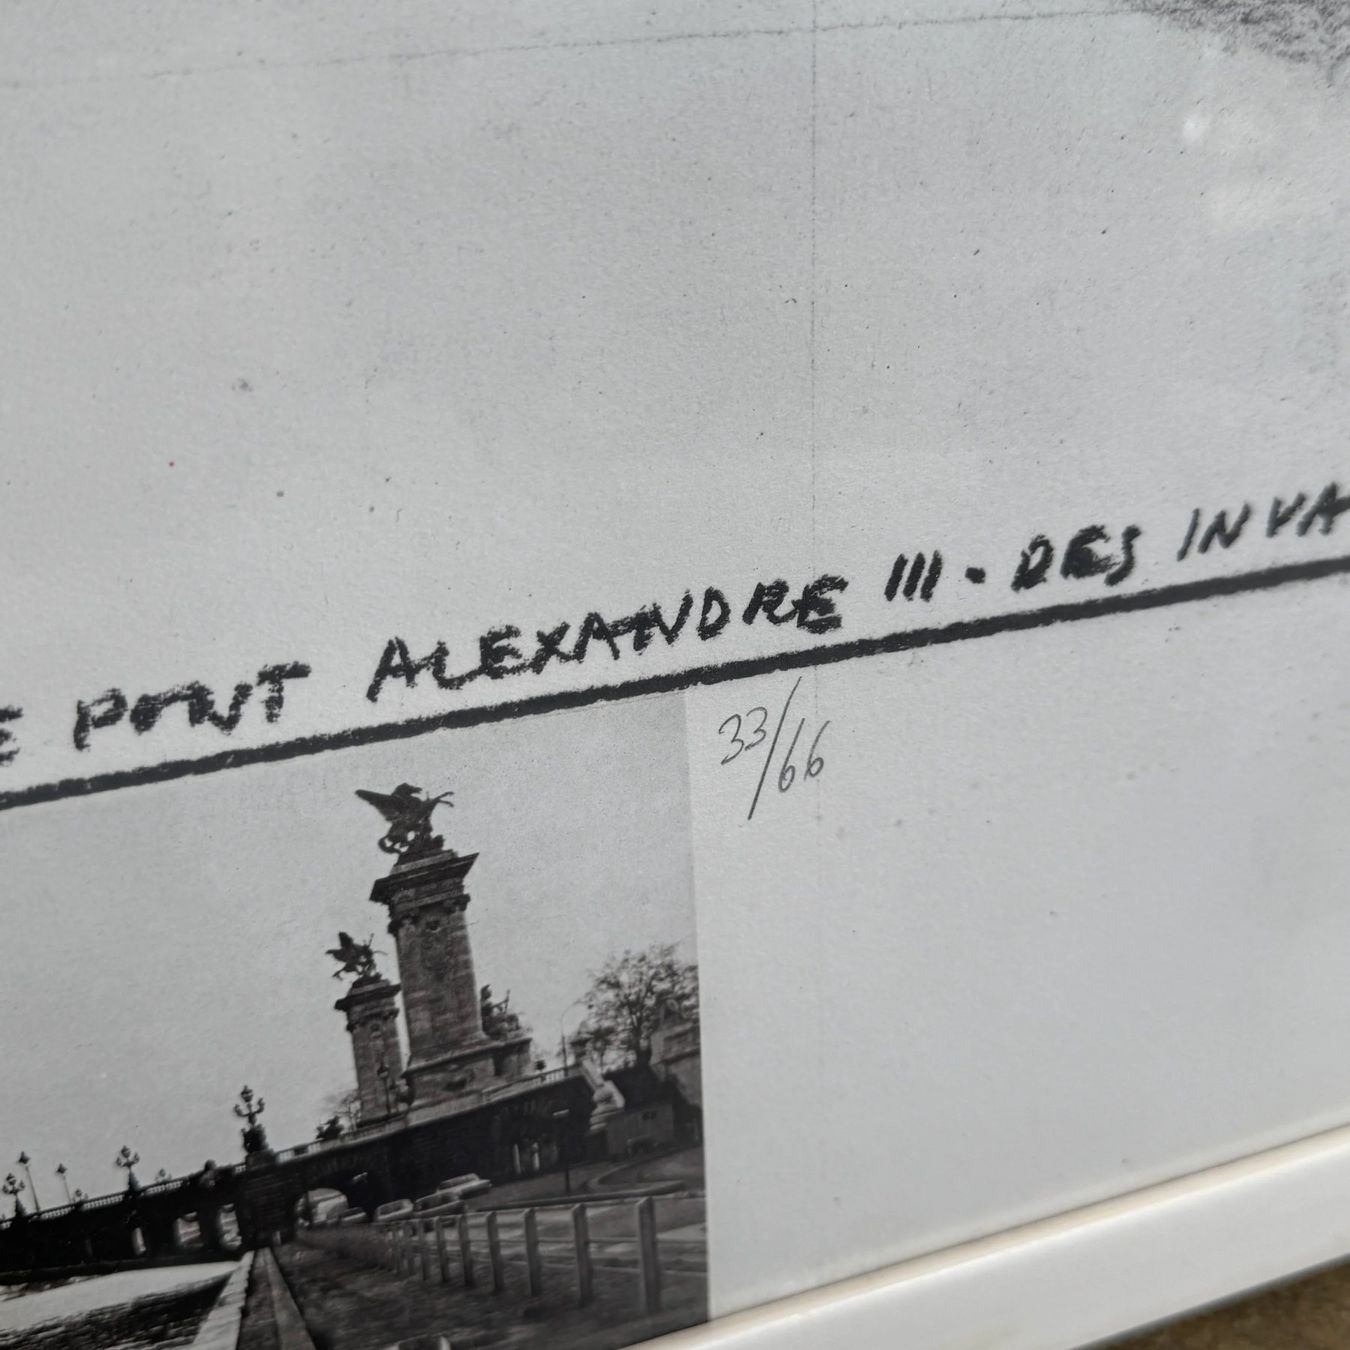 PONT ALEXANDRE III. DES INVA
33/66